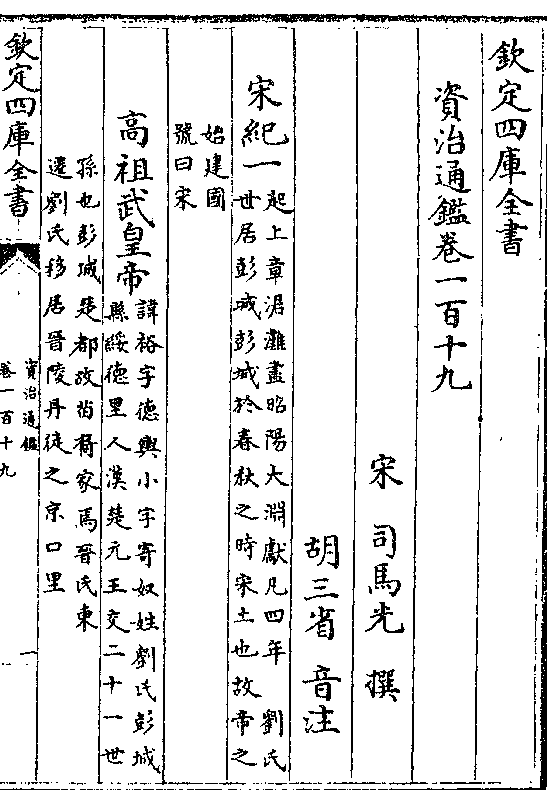 欽定四庫全書
資治通鑑卷一百十九
宋 司馬光 撰
胡三省 音注
宋紀一
起上章涒灘盡昭陽大淵獻凡四年 劉氏
世居彭城彭城於春秋之時宋土也故帝之
始建國
號曰宋
高祖武皇帝
諱裕字德輿小字寄奴姓劉氏彭城
縣綏德里人漢楚元王交二十一世
孫也彭城楚都故苗裔家焉晉氏東
遷劉氏移居晉陵丹徒之京口里
欽定四庫全書
資治通鑑
卷一百十九
一